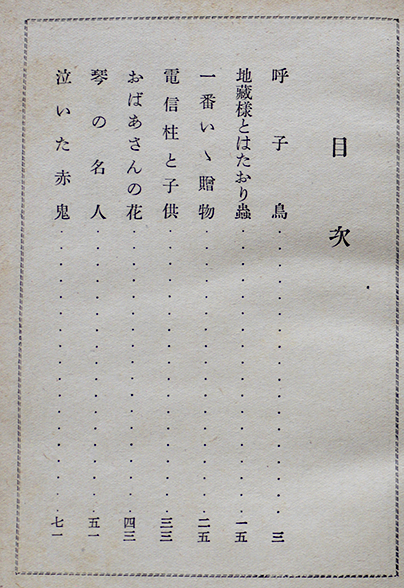 目次
呼子鳥・・・・・・・・・・・・・・・・・・三
地藏様とはたおり蟲・・・・・・・・・・・・・・・・・・一五
一番いゝ贈物・・・・・・・・・・・・・・・・・・二五
電信柱と子供・・・・・・・・・・・・・・・・・・三三
おばあさんの花・・・・・・・・・・・・・・・・・・四三
琴の名人・・・・・・・・・・・・・・・・・・五一
泣いた赤鬼・・・・・・・・・・・・・・・・・・七一